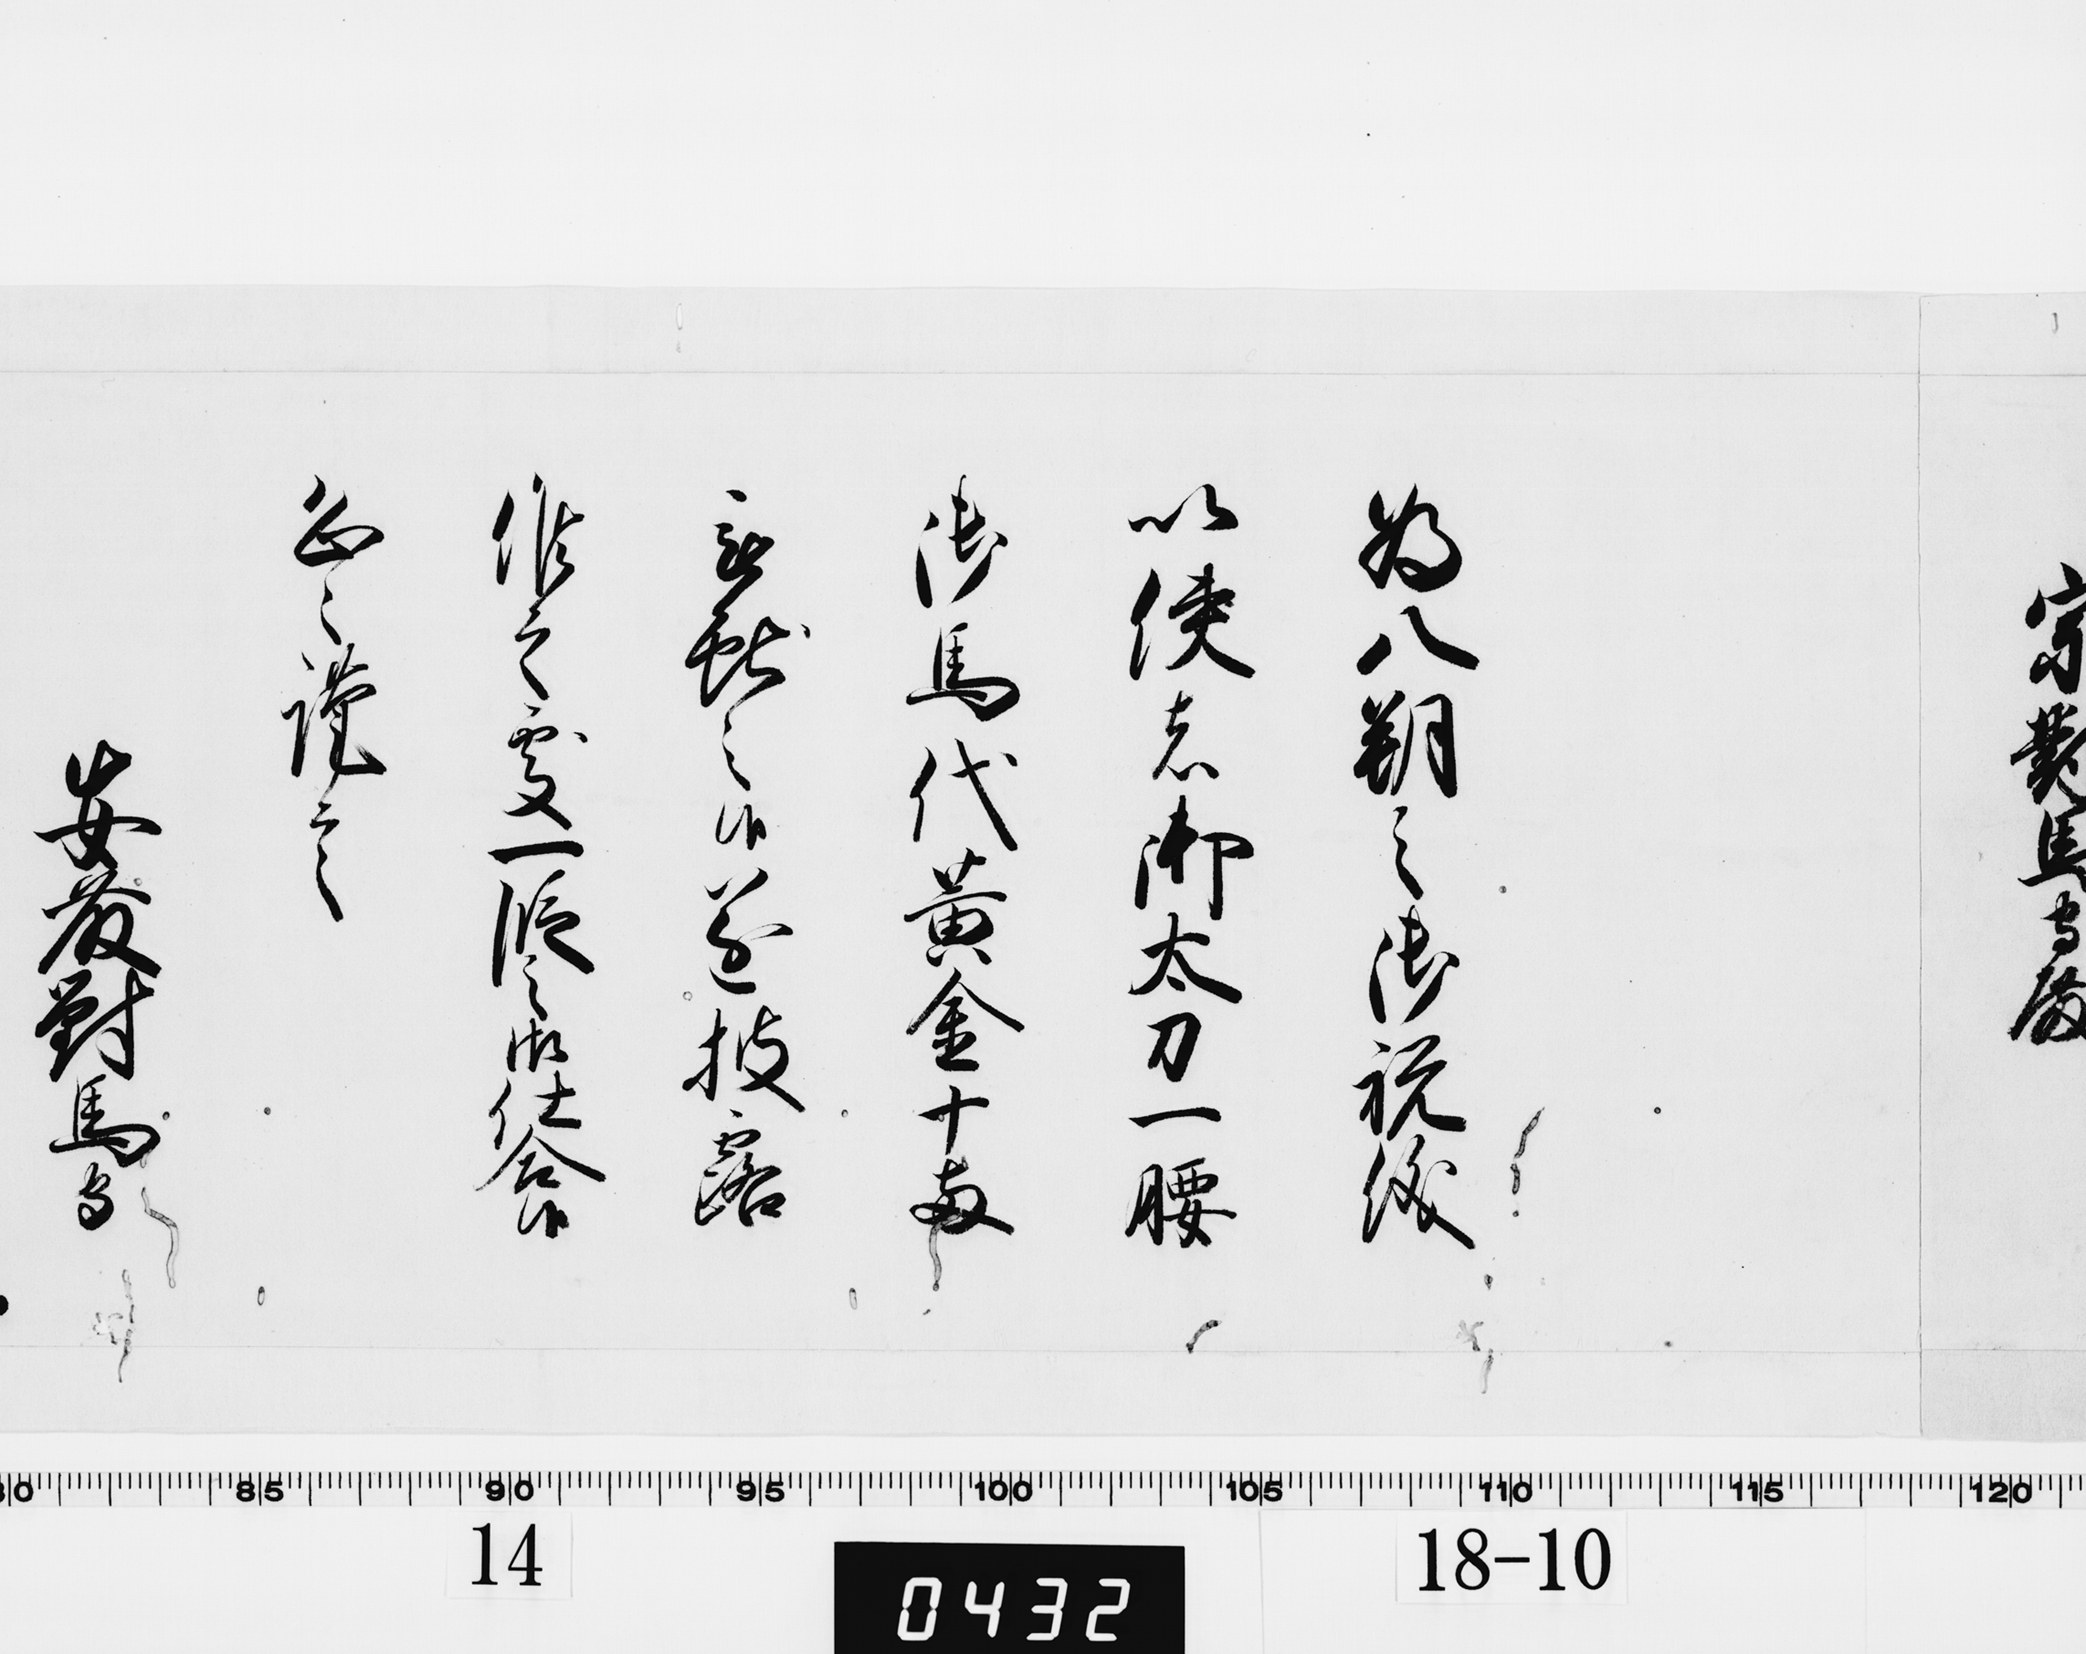 宗對馬守殿
為八朔之御祝儀
以使者御太刀一腰
御馬代黄金十両
被献之候遂披露
候之處一段之御仕合候
恐々謹言
安藤對馬守
85 90 95 100 105 110 115 120
14
0432
18-10